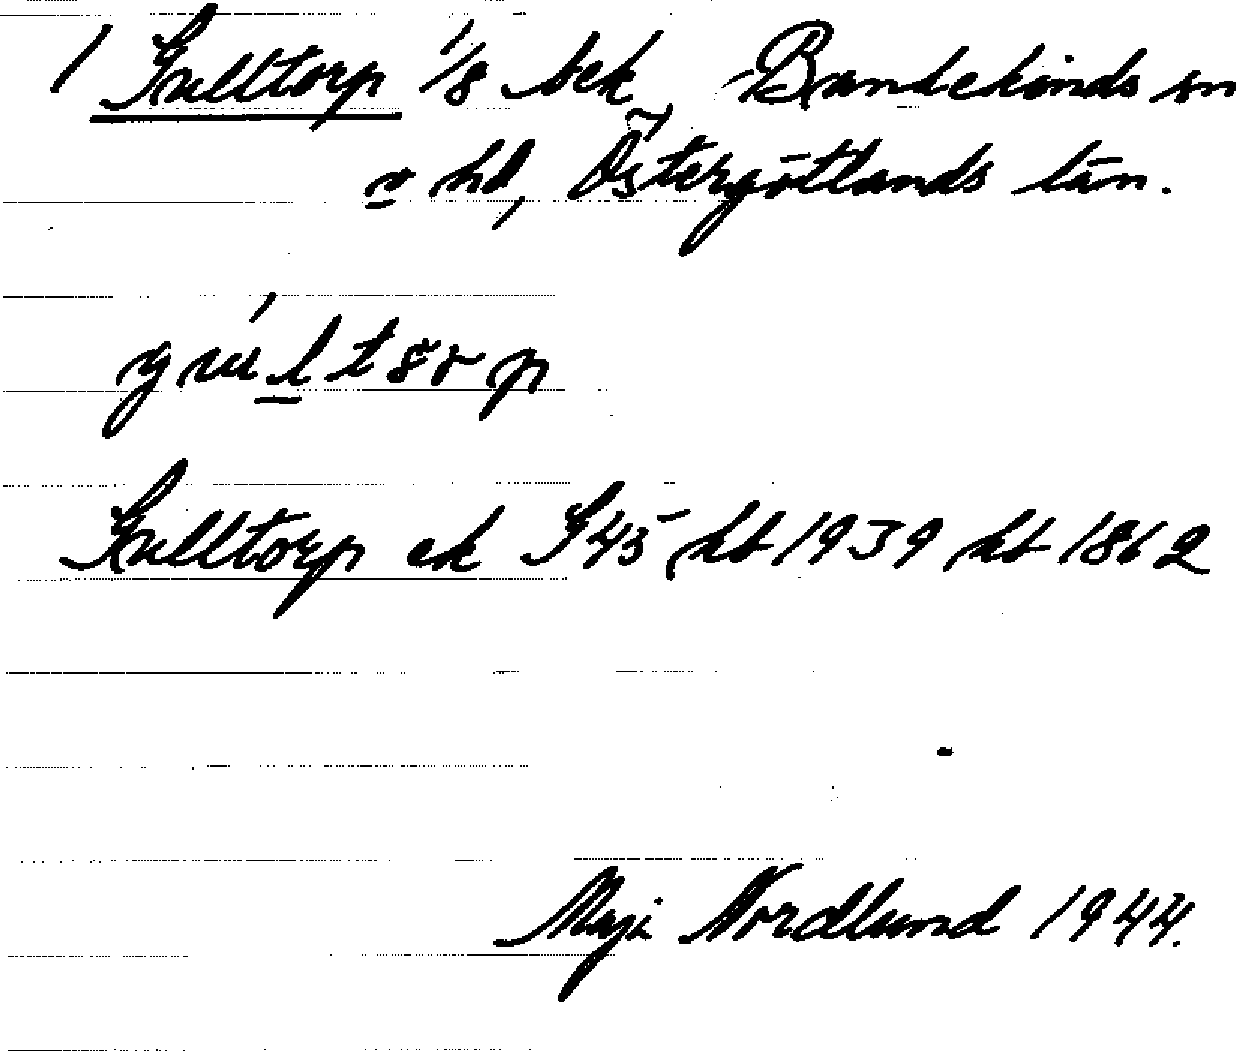 1 Gulltorp 1/8 bek, Bankekinds sn
o hd, Östergötlands län.
gu̇ltorp
Gulltorp ek S45 hb 1939 hb 1862
Maji Nordlund 1944.